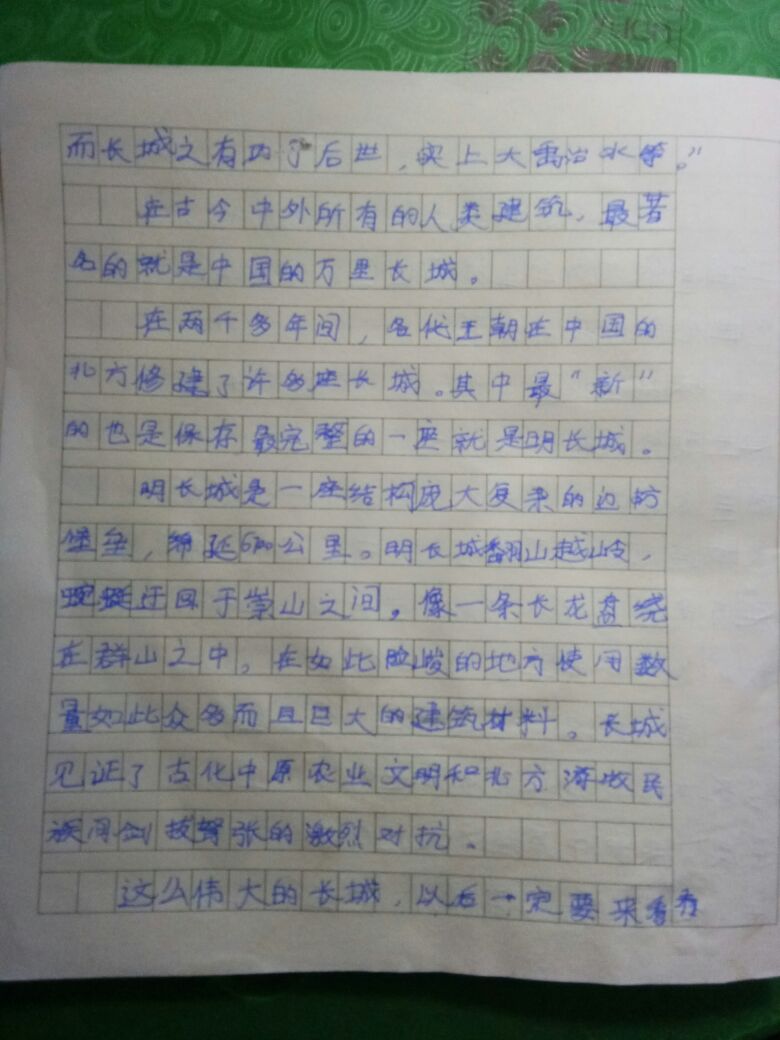 而长城之有功于后世，实上大禹治水等。”
在古今中外所有的人类建筑，最著
名的就是中国的万里长城。
在两千多年间，各代王朝在中国的
北方修建了许多座长城。其中最“新”
的也是保存最完整的一座就是明长城。
明长城是一座结构庞大复杂的边防
堡垒，绵延6700公里。明长城翻山越岭，
蜿蜒迂回于崇山之间。像一条长龙盘绕
在群山之中，在如此险峻的地方使用数
量如此众多而且巨大的建筑材料。长城
见证了古化中原农业文明和北方游牧民
族间剑拔弩张的激烈对抗。
这么伟大的长城，以后一定要来看看